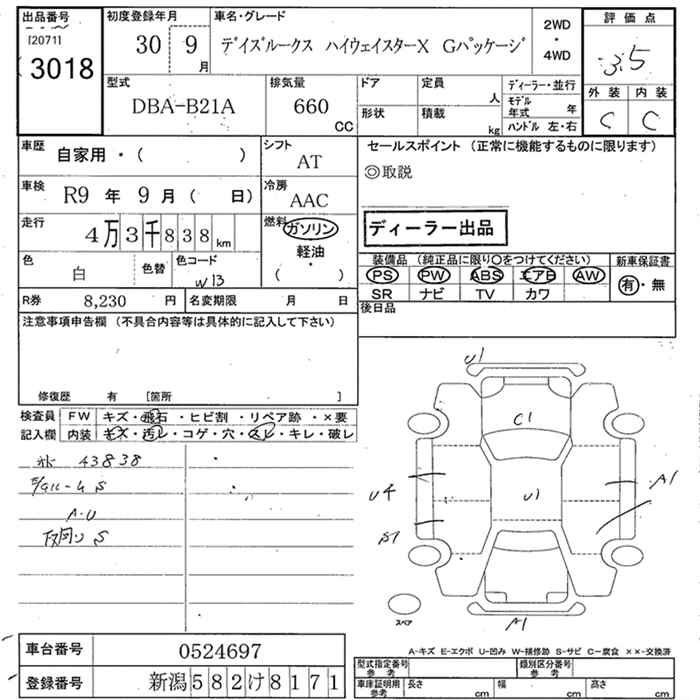 出品番号
[2071]
3018
初度登録年月
30 9月
車名・グレード
デイズルークス ハイウェイスターX Gパッケージ
2WD
・
4WD
評価点
3.5
外装 内装
C C
型式
DBA-B21A
排気量
660
CC
ドア
形状
定員
人
積載
kg
ディーラー・並行
モデル年式 年
ハンドル 左・右
車歴
自家用・( )
シフト
AT
車検
R9 年 9 月 ( 日)
冷房
AAC
走行
4万3千838km
燃料
ガソリン
軽油
・
( )
色
白
色替
色コード
W13
R券 8,230 円
名変期限 月 日
セールスポイント (正常に機能するものに限ります)
◎取説
ディーラー出品
装備品 (純正品に限り○をつけてください)
PS PW ABS エアB AW
SR ナビ TV カワ
新車保証書
有・無
後日品
注意事項申告欄 (不具合内容等は具体的に記入して下さい)
修復歴 有 [箇所 ]
検査員 FW キズ・飛石・ヒビ割・リペア跡・×要
記入欄 内装 キズ・汚レ・コゲ・穴・スレ・キレ・破レ
43838
S
A・U
S
U1
C1
U1
A1
A1
スペア
A-キズ E-エクボ U-凹み W-補修跡 S-サビ C-腐食 ××-交換済
車台番号 0524697
登録番号 新潟582け8171
型式指定番号
参考
類別区分番号
参考
車庫証明用
参考
長さ cm
幅 cm
高さ cm